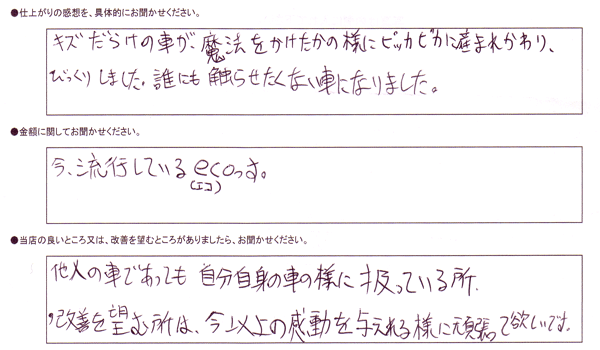 ●仕上がりの感想を、具体的にお聞かせください。
キズだらけの車が、魔法をかけたかの様にピッカピカに産まれかわり、
びっくりしました。誰にも触らせたくない車になりました。
●金額に関してお聞かせください。
今、流行しているecoっす。
(エコ)
●当店の良いところ又は、改善を望むところがありましたら、お聞かせください。
他人の車であっても自分自身の車の様に扱っている所。
改善を望む所は、今以上の感動を与えれる様に頑張って欲しいです。